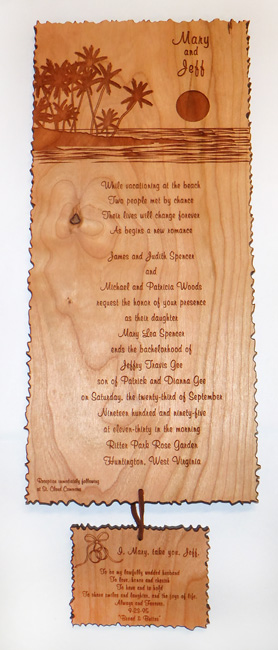 Mary
and
Jeff
While vacationing at the beach
Two people met by chance
Their lives will change forever
As begins a new romance
James and Judith Spencer
and
Michael and Patricia Woods
request the honor of your presence
as their daughter
Mary Lea Spencer
ends the bachelorhood of
Jeffry Travis Gee
son of Patrick and Dianna Gee
on Saturday, the twenty-third of September
Nineteen hundred and ninety-five
at eleven-thirty in the morning
Ritter Park Rose Garden
Huntington, West Virginia
Reception immediately following
at St. Cloud Commons
I, Mary, take you, Jeff,
To be my lawfully wedded husband
To love, honor and cherish
To have and to hold
To share smiles and laughter, and the joys of life.
Always and Forever,
9-23-95